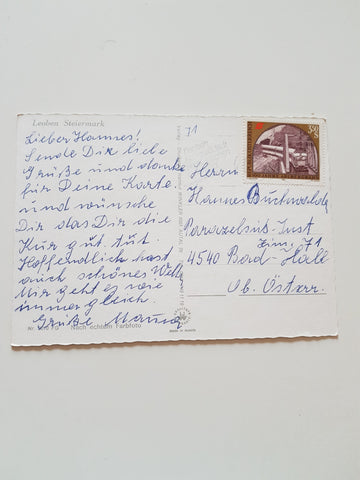 Leoben Steiermark
Lieber Hannes!
Sende Dir liebe
Grüße und danke
für Deine Karte
und wünsche
Dir das Dir die
Kur gut tut.
Hoffendlich hast
auch schönes Wett.
Mir geht es wie
immer gleich.
Grüße
Nach echtem Farbfoto
71
Herrn
Hannes
Paracelsus-Inst
Zim. 71
4540 Bad-Hall
Ob. Österr.